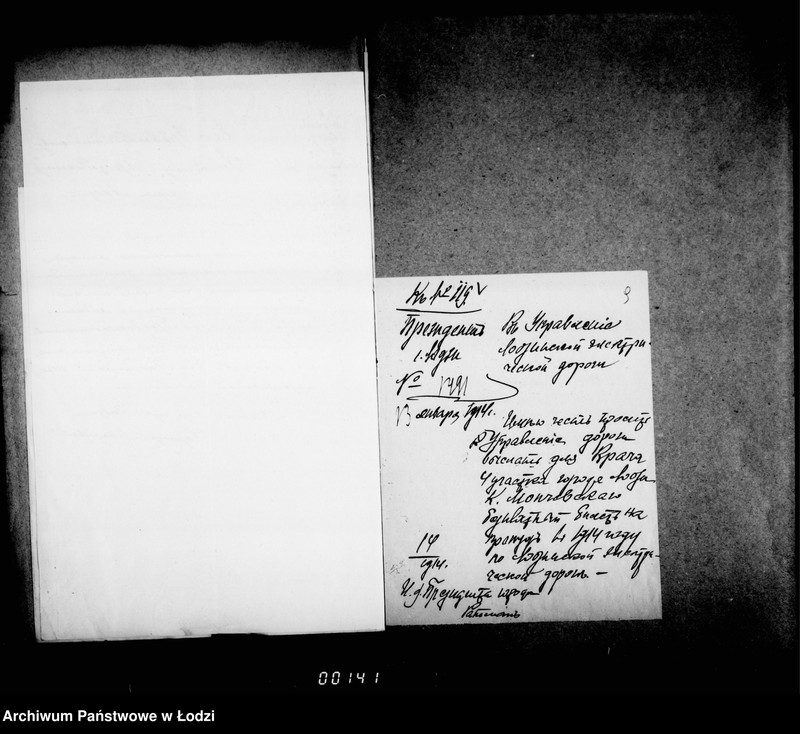 9
Президентъ
г. Лодзи
№ 1791
13 января 1914 г.
Въ Управленіе
Лодзинской электри-
ческой дороги
Имѣю честь просить
Управленіе дороги
выслать для Врача
4 участка города Лодзи
К. Мончевскаго
безплатный билетъ на
проѣздъ въ 1914 году
по Лодзинской электри-
ческой дорогѣ —
14
1914.
И. д. Президента города
00141
Archiwum Państwowe w Łodzi